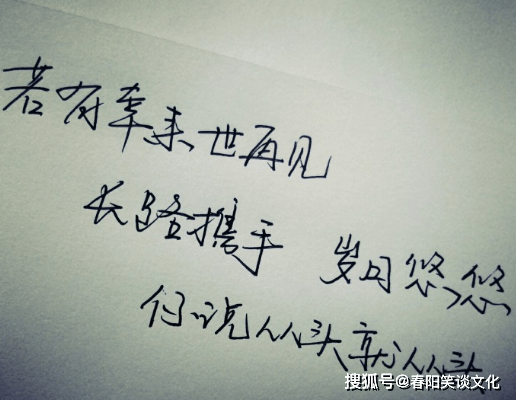 若有幸来世再见
长路携手 岁月悠悠
何说从头就从头
搜狐号@春阳笑谈文化